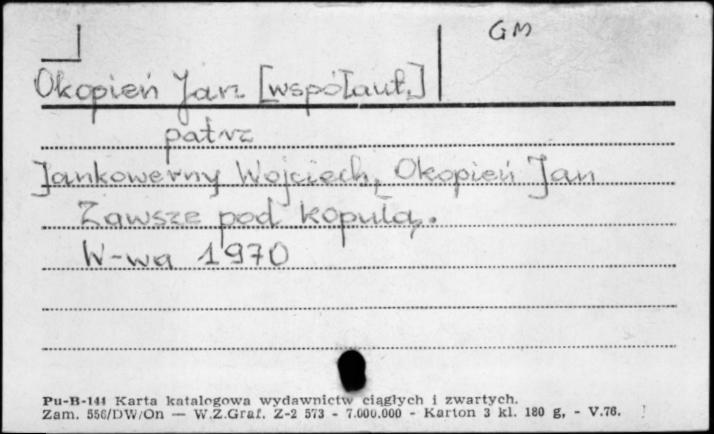 GM
Okopień Jan [współaut.]
patrz
Jankowerny Wojciech, Okopień Jan
Zawsze pod kopułą.
W-wa 1970
Pu-B-144 Karta katalogowa wydawnictw ciągłych i zwartych.
Zam. 556/DW/On — W.Z.Graf. Z-2 573 - 7.000.000 - Karton 3 kl. 180 g, - V.76.